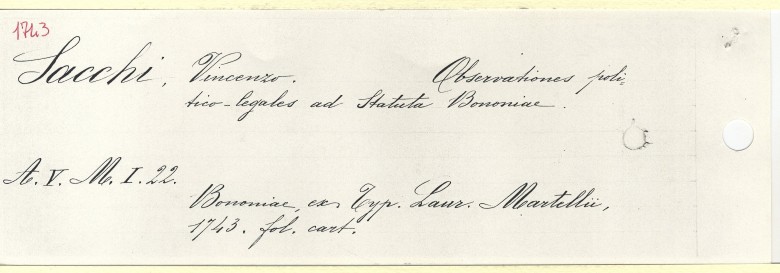 1743
Sacchi, Vincenzo. Observationes poli-
tico-legales ad Statuta Bononiae.
A. V. M. I. 22.
Bononiae, ex Typ. Laur. Martellii,
1743. fol. cart.